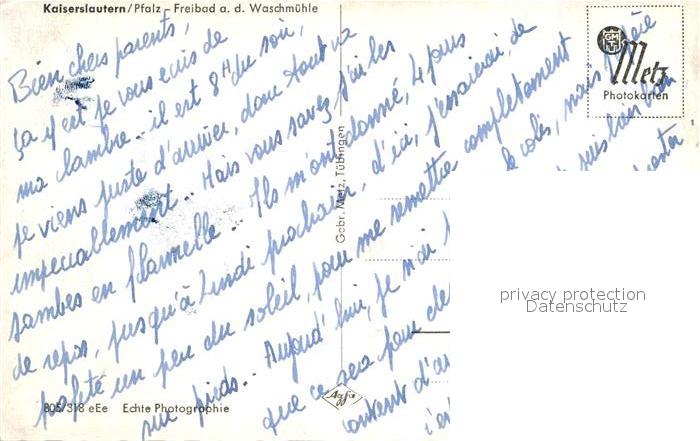 Kaiserslautern/Pfalz - Freibad a. d. Waschmühle
GMT
Metz
Photokarten
Bien chers parents,
ça y est je vous ecris de
ma chambre - il est 8H du soir,
je viens juste d'arriver, donc tout va
impeccablement.. Mais vous savez j'ai les
jambes en flannelle. Ils m'ont donné, 4 jours
de repos, jusqu'à Lundi prochain, d'ici, j'essaierai de
un peu du soleil, pour me remettre complètement
sur pieds.. Aujourd'hui, je n'ai
le colis, mais
que ce sera pour
suis bien
content d'
Gebr. Metz, Tübingen
Agfa
805/318 eEe Echte Photographie
privacy protection
Datenschutz